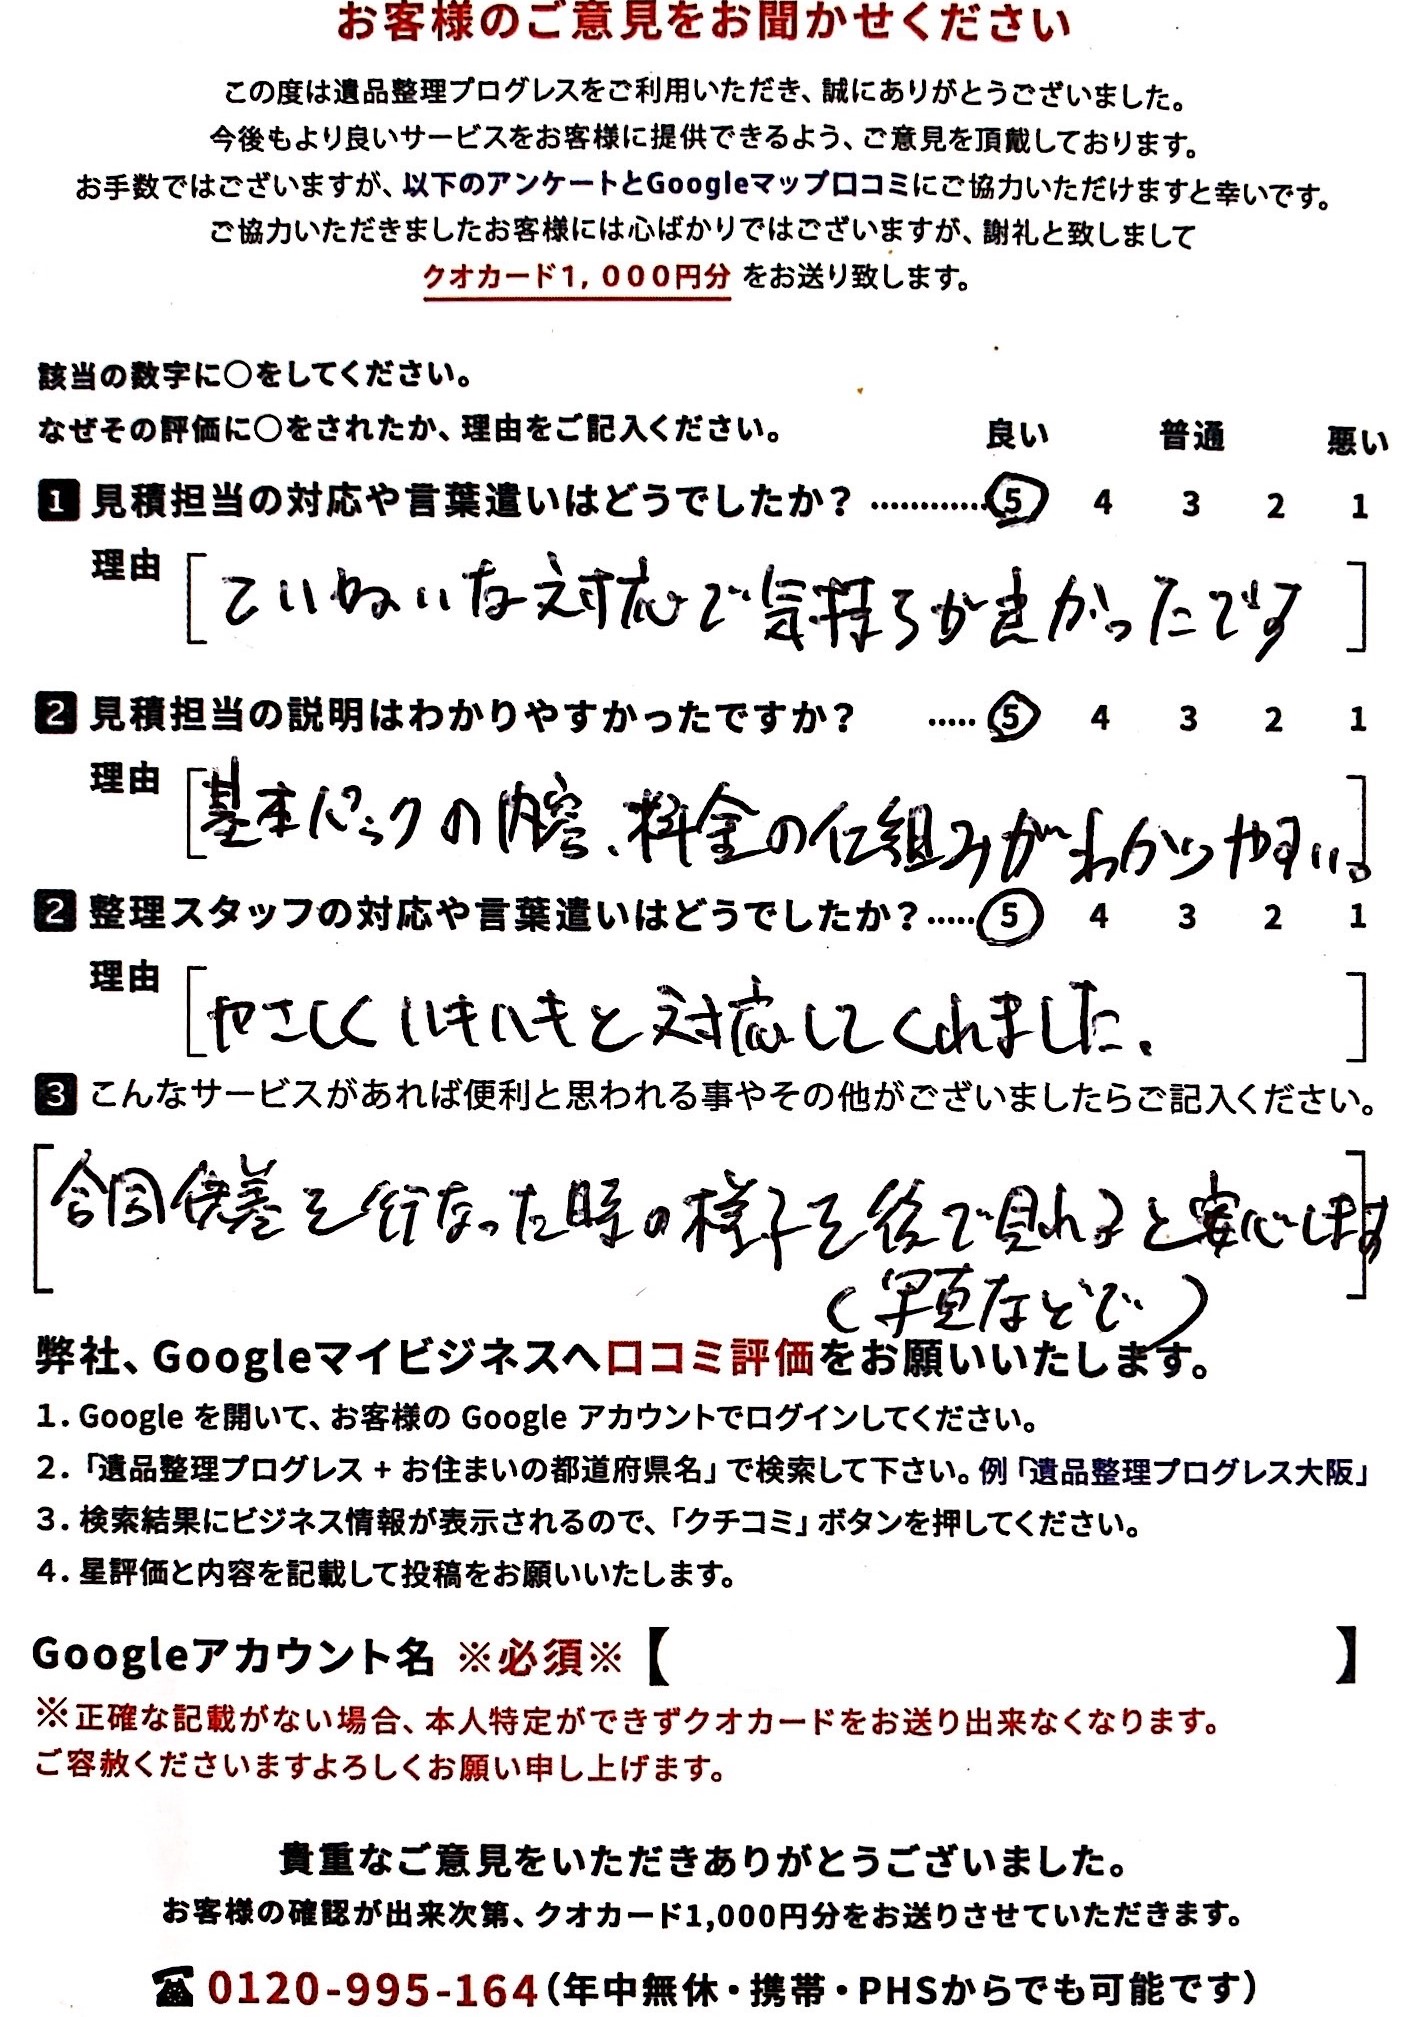 お客様のご意見をお聞かせください
この度は遺品整理プログレスをご利用いただき、誠にありがとうございました。
今後もより良いサービスをお客様に提供できるよう、ご意見を頂戴しております。
お手数ではございますが、以下のアンケートとGoogleマップ口コミにご協力いただけますと幸いです。
ご協力いただきましたお客様には心ばかりではございますが、謝礼と致しまして
クオカード1,000円分 をお送り致します。
該当の数字に○をしてください。
なぜその評価に○をされたか、理由をご記入ください。 良い 普通 悪い
1 見積担当の対応や言葉遣いはどうでしたか? …………5 4 3 2 1
理由 [ ていねいな対応で気持ちが良かったです ]
2 見積担当の説明はわかりやすかったですか? ……5 4 3 2 1
理由 [ 基本パックの内容、料金の仕組みがわかりやすい。 ]
2 整理スタッフの対応や言葉遣いはどうでしたか?……5 4 3 2 1
理由 [ やさしくハキハキと対応してくれました。 ]
3 こんなサービスがあれば便利と思われる事やその他がございましたらご記入ください。
[ 合同供養を行なった時の様子を後で見れると安心します
(写真などで) ]
弊社、Googleマイビジネスへ口コミ評価をお願いいたします。
1. Google を開いて、お客様の Google アカウントでログインしてください。
2.「遺品整理プログレス + お住まいの都道府県名」で検索して下さい。例「遺品整理プログレス大阪」
3. 検索結果にビジネス情報が表示されるので、「クチコミ」ボタンを押してください。
4. 星評価と内容を記載して投稿をお願いいたします。
Googleアカウント名 ※必須※【 】
※正確な記載がない場合、本人特定ができずクオカードをお送り出来なくなります。
ご容赦くださいますよろしくお願い申し上げます。
貴重なご意見をいただきありがとうございました。
お客様の確認が出来次第、クオカード1,000円分をお送りさせていただきます。
☎ 0120-995-164(年中無休・携帯・PHSからでも可能です)